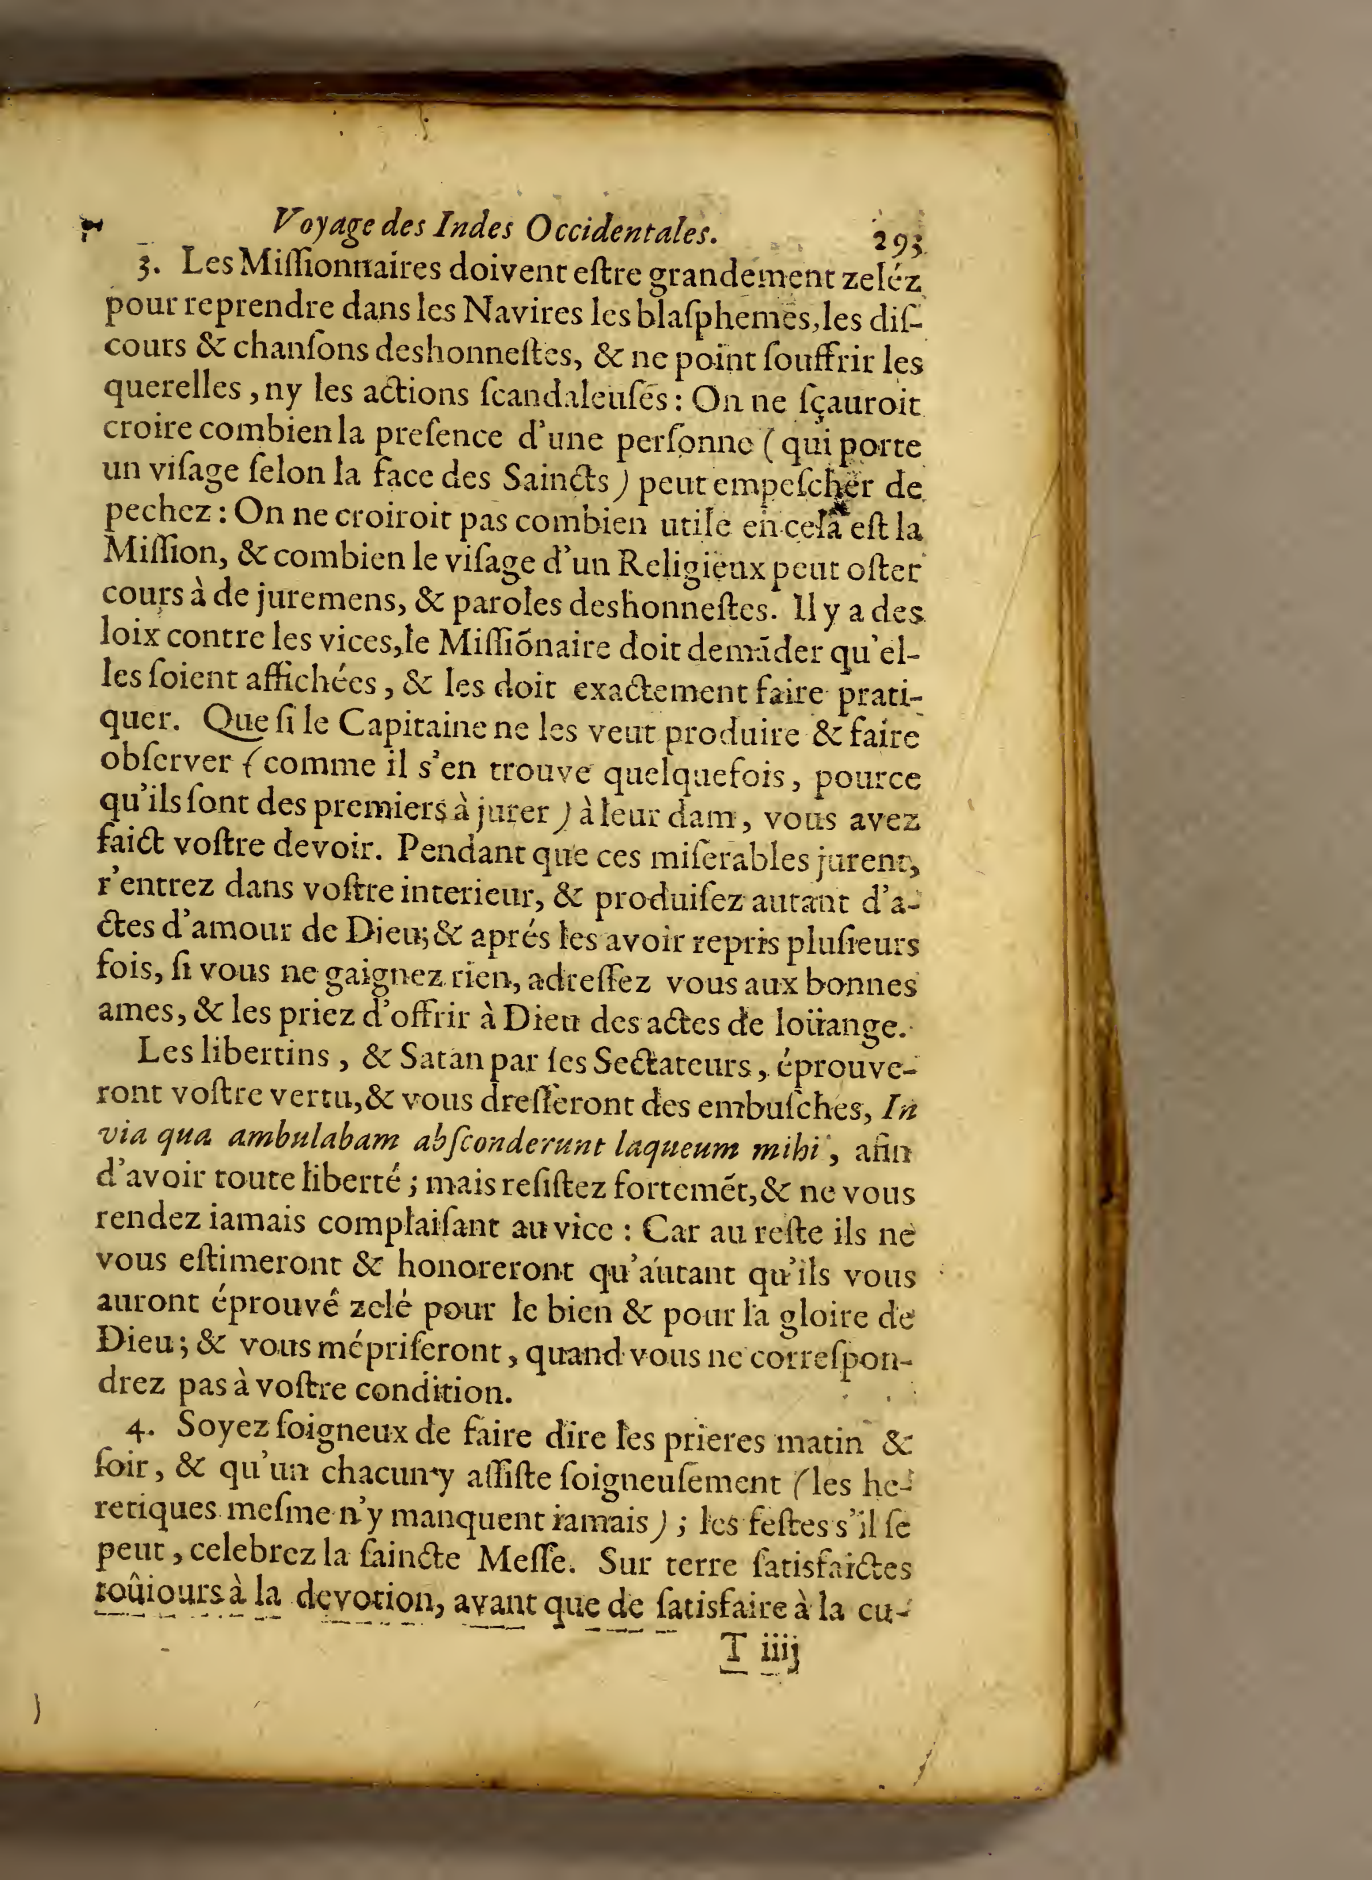 Voyage des Indes Occidentales. 293
3. Les Miſſionnaires doivent eſtre grandement zeléz
pour reprendre dans les Navires les blaſphemes, les diſ-
cours & chanſons deshonneſtes, & ne point ſouffrir les
querelles, ny les actions ſcandaleuſes : On ne ſçauroit
croire combien la preſence d'une perſonne (qui porte
un viſage ſelon la face des Saincts) peut empeſcher de
pechez : On ne croiroit pas combien utile en cela eſt la
Miſſion, & combien le viſage d'un Religieux peut oſter
cours à de juremens, & paroles deshonneſtes. Il y a des
loix contre les vices, le Miſſiõnaire doit demãder qu'el-
les ſoient affichées, & les doit exactement faire prati-
quer. Que ſi le Capitaine ne les veut produire & faire
obſerver (comme il s'en trouve quelquefois, pource
qu'ils ſont des premiers à jurer) à leur dam, vous avez
faict voſtre devoir. Pendant que ces miſerables jurent,
r'entrez dans voſtre interieur, & produiſez autant d'a-
ctes d'amour de Dieu; & aprés les avoir repris pluſieurs
fois, ſi vous ne gaignez rien, adreſſez vous aux bonnes
ames, & les priez d'offrir à Dieu des actes de loüange.
Les libertins, & Satan par ſes Sectateurs, éprouve-
ront voſtre vertu, & vous dreſſeront des embuſches, In
via qua ambulabam abſconderunt laqueum mihi, afin
d'avoir toute liberté ; mais reſiſtez fortemẽt, & ne vous
rendez iamais complaiſant au vice : Car au reſte ils ne
vous eſtimeront & honoreront qu'autant qu'ils vous
auront éprouvé zelé pour le bien & pour la gloire de
Dieu ; & vous mépriſeront, quand vous ne correſpon-
drez pas à voſtre condition.
4. Soyez ſoigneux de faire dire les prieres matin &
ſoir, & qu'un chacun y aſſiſte ſoigneuſement (les he-
retiques meſme n'y manquent iamais) ; les feſtes s'il ſe
peut, celebrez la ſaincte Meſſe. Sur terre ſatisfaictes
toûiours à la devotion, avant que de ſatisfaire à la cu-
T iiij